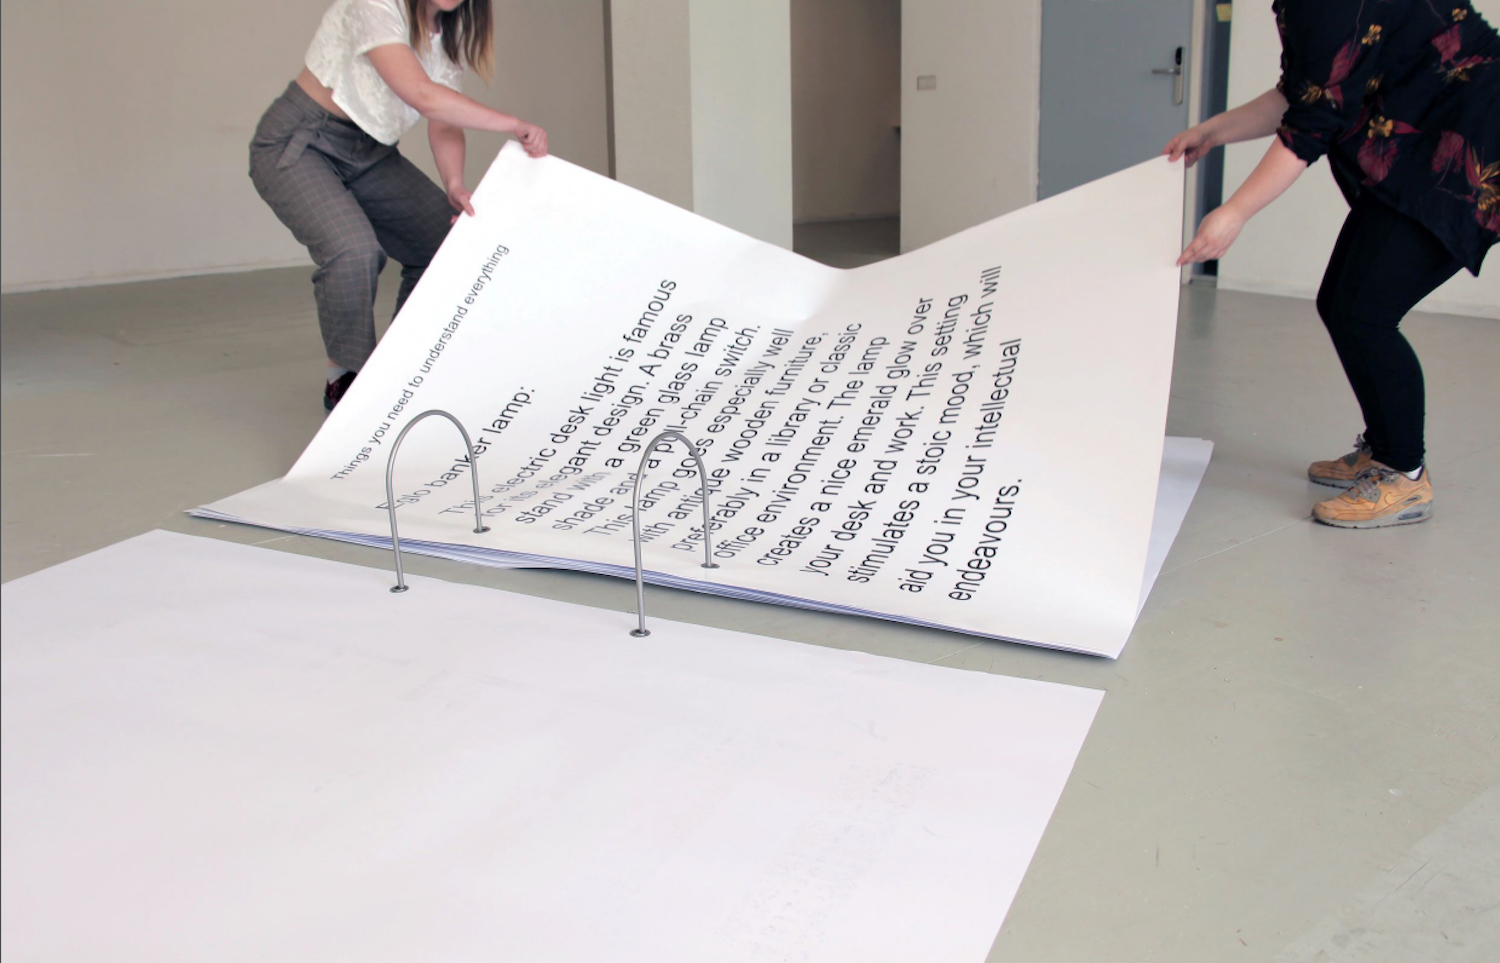 Things you need to understand everything
Eglo banker lamp:
This electric desk light is famous
for its elegant design. A brass
stand with a green glass lamp
shade and a pull-chain switch.
This lamp goes especially well
with antique wooden furniture,
preferably in a library or classic
office environment. The lamp
creates a nice emerald glow over
your desk and work. This setting
stimulates a stoic mood, which will
aid you in your intellectual
endeavours.